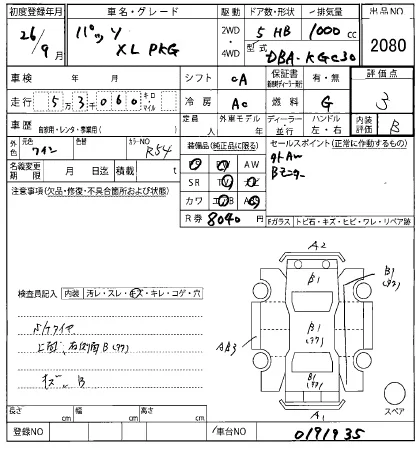 初度登録年月 車名・グレード 駆動 ドア数・形状 排気量 出品NO
26/9月 パッソ XL PKG 2WD・4WD 5 HB 1000cc 2080
型式 DBA-KGC30
車検 年 月 シフト CA 保証書 有・無 評価点
走行 53060 キロ・マイル 冷房 AC 燃料 G 3
車歴 自家用・レンタ・事業用( ) 定員 人 外車モデル 年 ディーラー・並行 ハンドル 左・右 内装評価 B
外色 元色 ワイン 色替 カラーNO R54 装備品(純正品に限る) セールスポイント(正常に作動するもの)
名義変更期限 月 日迄 積載 t
PS PW AW
SR TV ナビ
カワ エアB
Bモニター
R券 8040円
注意事項(欠品・修復・不具合箇所および状態)
Fガラス トビ石・キズ・ヒビ・ワレ・リペア跡
A2
B1
B1
B1
A1
スペア
検査員記入 内装 汚レ・スレ・キズ・キレ・コゲ・穴
キズ B
長さ cm 幅 cm 高さ cm
登録NO 車台NO 0191935